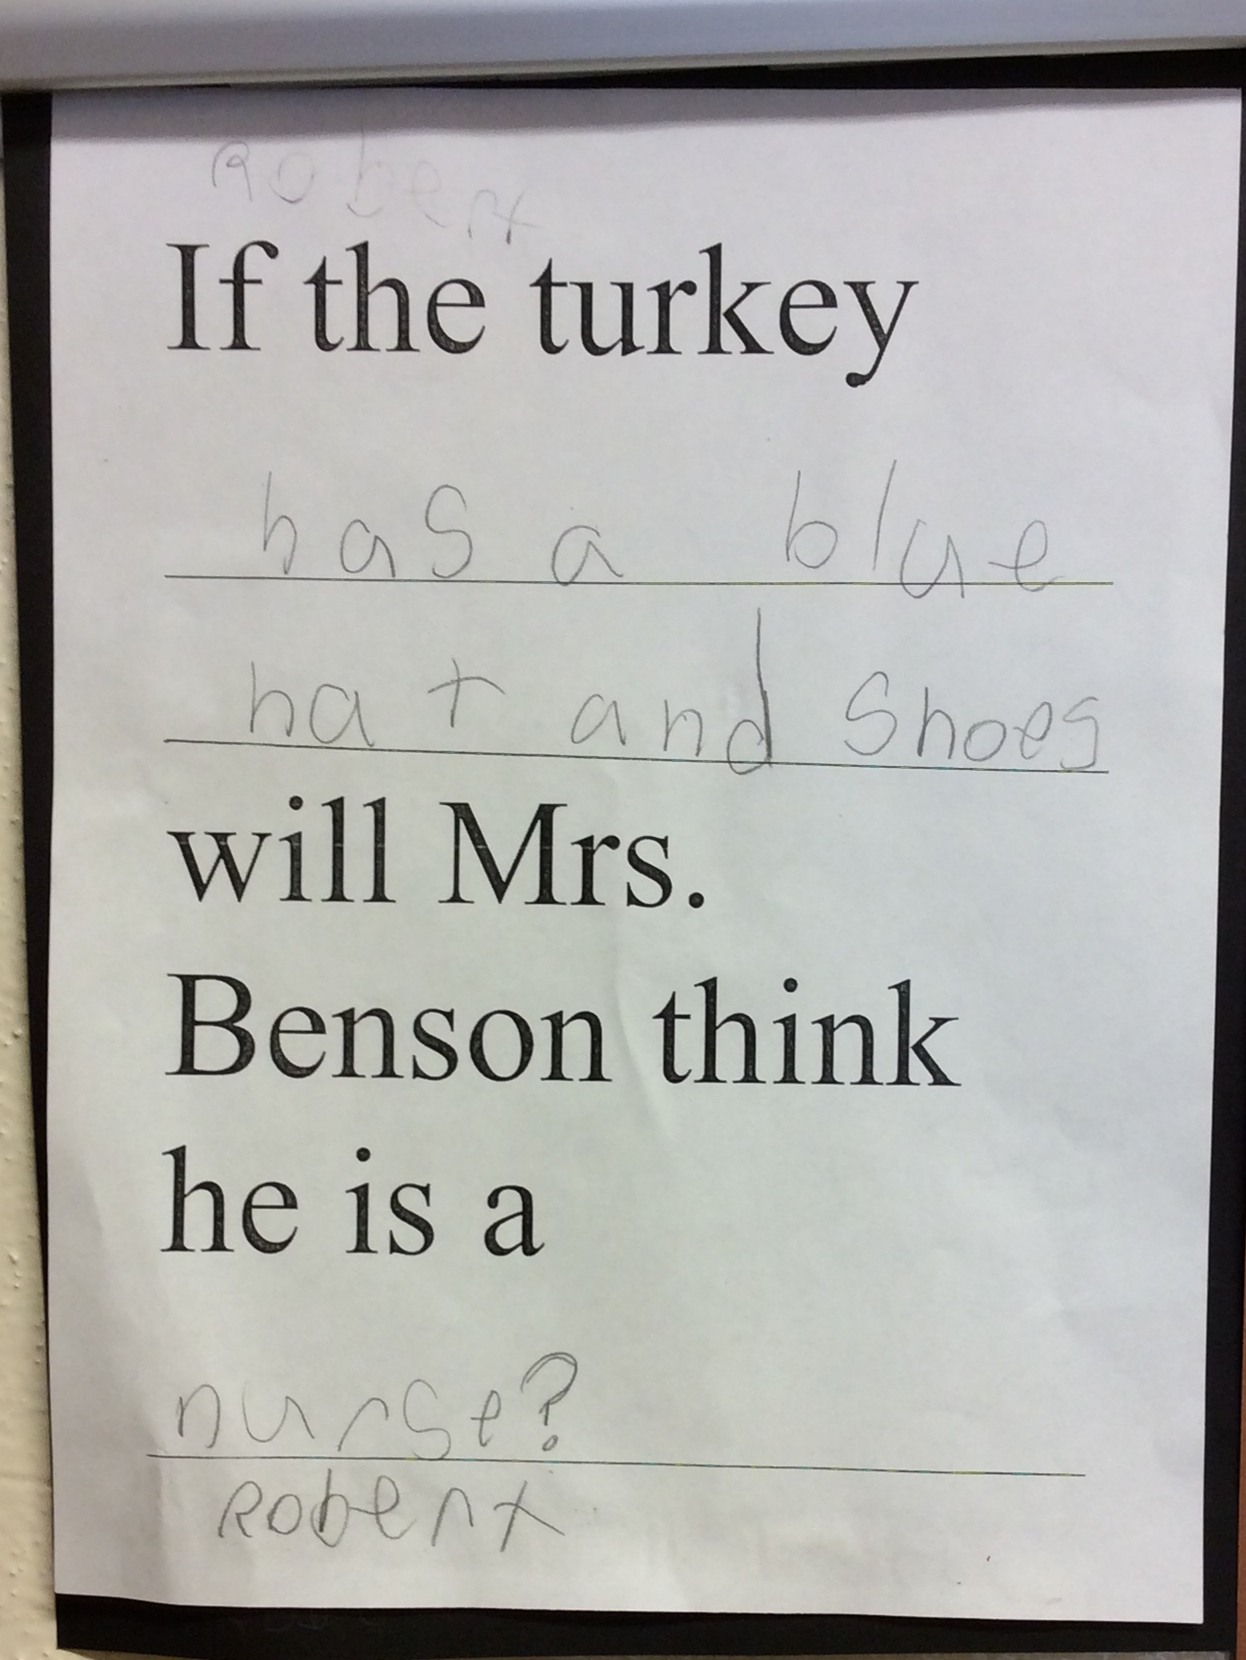 Robert
If the turkey
has a blue
hat and shoes
will Mrs.
Benson think
he is a
nurse?
Robert